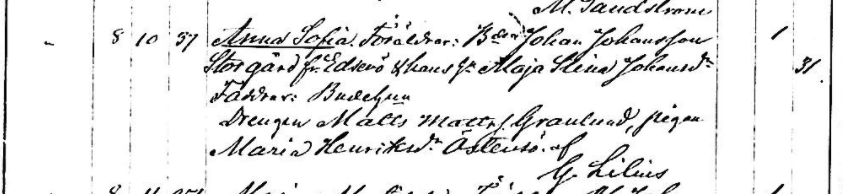 M. Sandstrom
" 8 10 37 Anna Sofia. Föräldrar: Bdn Johan Johansson 1
Storgård fr. Edsevö & hans h. Maja Stina Johansdr 31.
Faddrar:
Drengen Matts Mattss. Granlund, pigan
Maria Henriksdr Östensö. af
G. Lilius
8